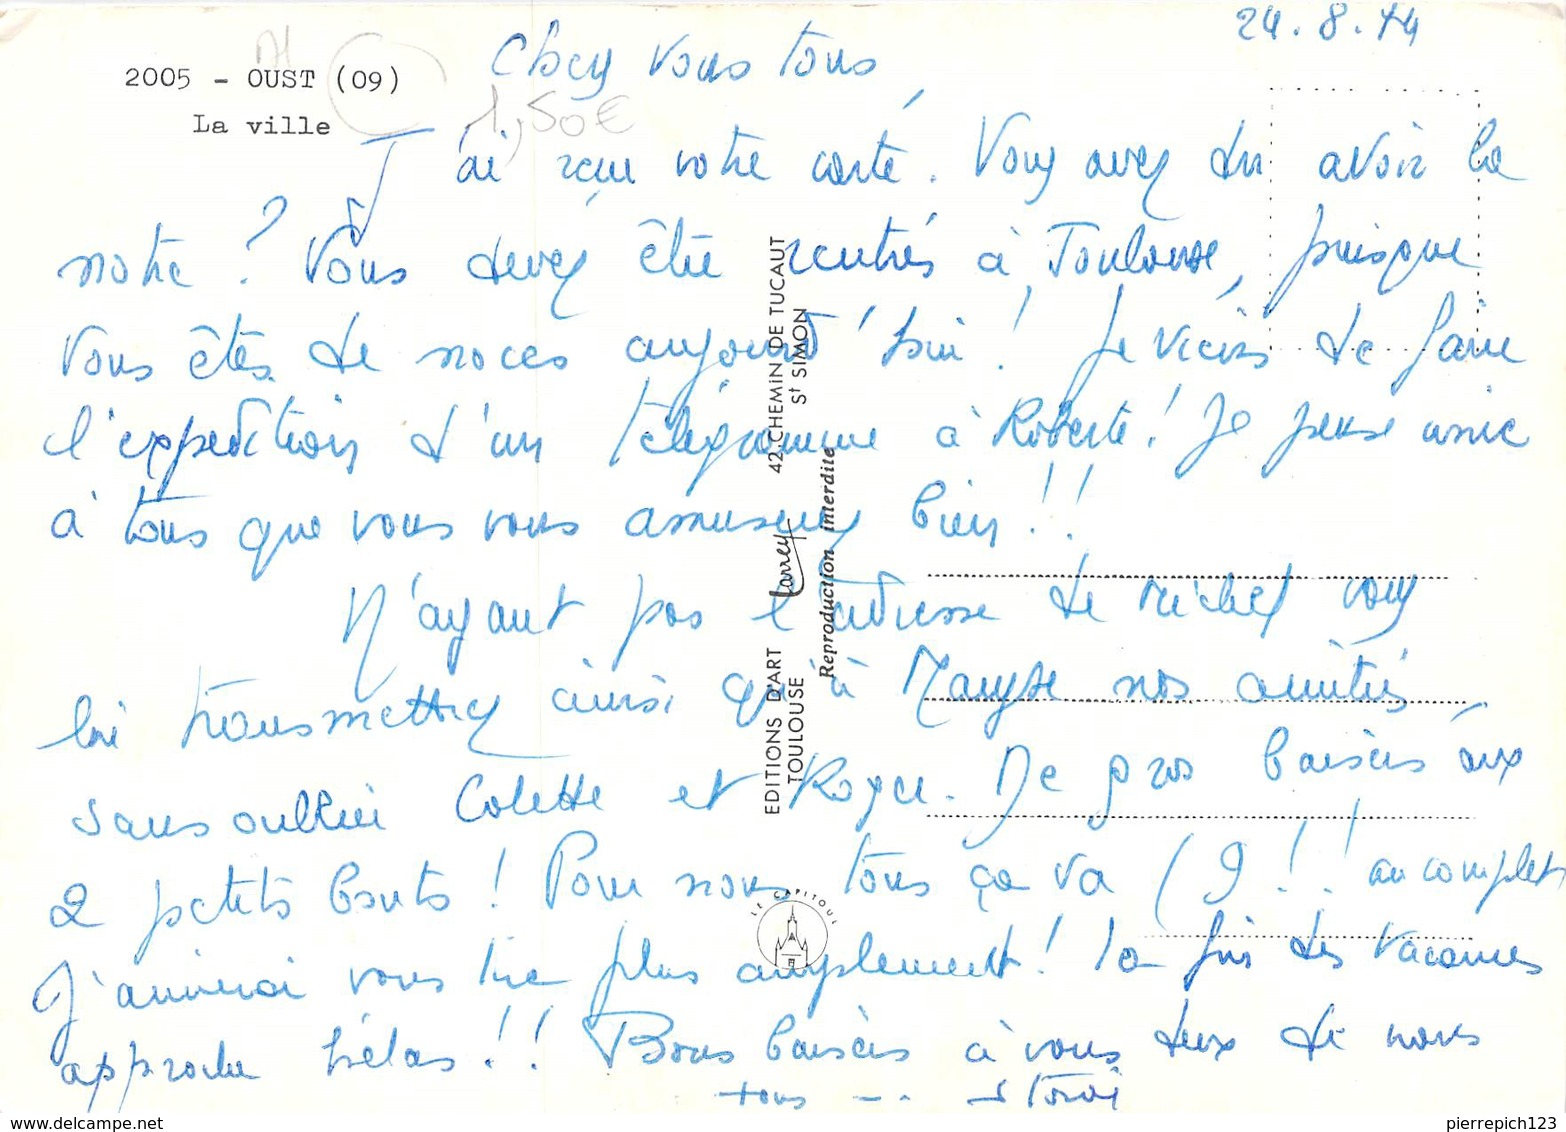 24.8.74
2005 - OUST (09)
La ville
1,50€
Chers vous tous
J'ai reçu votre carte. Vous avez dû avoir la
notre ? Vous devez être rentrés à Toulouse, puisque
vous êtes de noces aujourd'hui ! Je viens de faire
l'expédition d'un télégramme à Roberte ! Je pense avec
à tous que vous vous amuserez bien !!
N'ayant pas l'adresse de Michel vous
lui transmettrez ainsi qu'à Maryse nos amitiés
sans oublier Colette et Roger. De gros baisers aux
2 petits bouts ! Pour nous tous ça va (9 !! au complet
J'aimerai vous lire plus amplement ! la fin des vacances
approche hélas !! Bons baisers à vous deux de nous
tous
EDITIONS D'ART Larrey 42, CHEMIN DE TUCAUT
TOULOUSE St SIMON
Reproduction interdite
LE CAPITOUL
pierrepich123